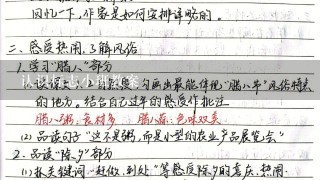 回忆一下，作家是如何安排详略的。
二、感受热闹，了解风俗
1. 学习"腊八"部分
勾画出最能体现"腊八节"风俗特点
的地方。结合自己过年的感受作批注
腊八粥：食材多 腊八蒜：色味双美
(2) 品读句子"这不是粥，而是小型的农业产品展览会"
2. 品读"除夕"部分
(1) 抓关键词"赶做、到处"等感受除夕的喜庆、热闹